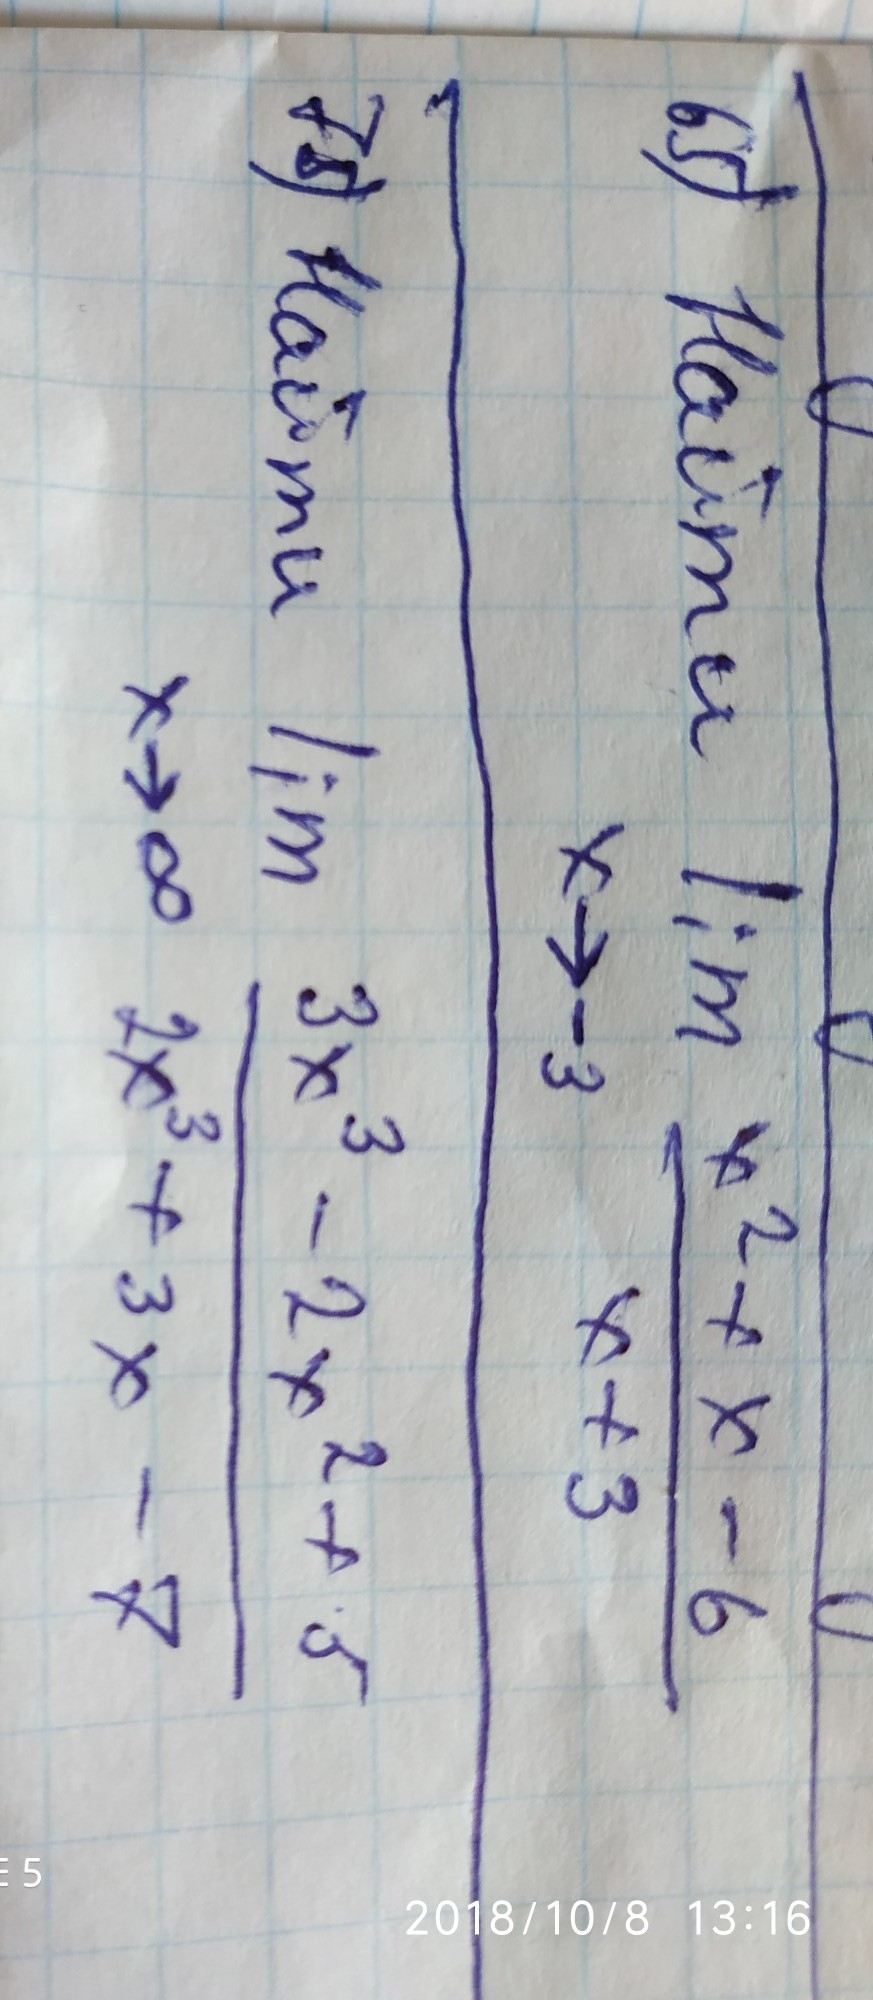 65) Найти lim x² + x - 6
x→-3 x + 3
75) Найти lim 3x³ - 2x² + 5
x→∞ 2x³ + 3x - 7
E 5
2018/10/8 13:16